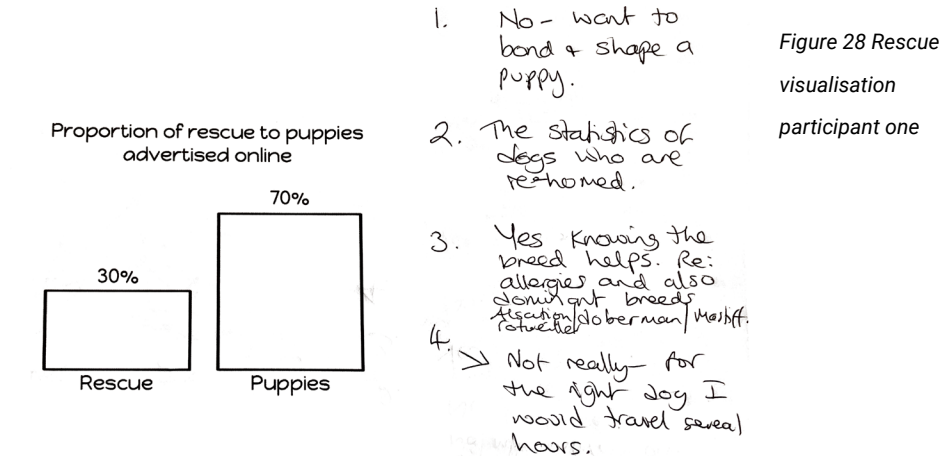 Proportion of rescue to puppies
advertised online
70%
30%
Rescue
Puppies
1. No - want to
bond & shape a
puppy.
2. The statistics of
dogs who are
re-homed.
3. Yes Knowing the
breed helps. Re:
allergies and also
dominant breeds
Alsation/doberman/Mastiff.
rotweiller
4.
> Not really - for
the right dog I
would travel several
hours.
Figure 28 Rescue
visualisation
participant one